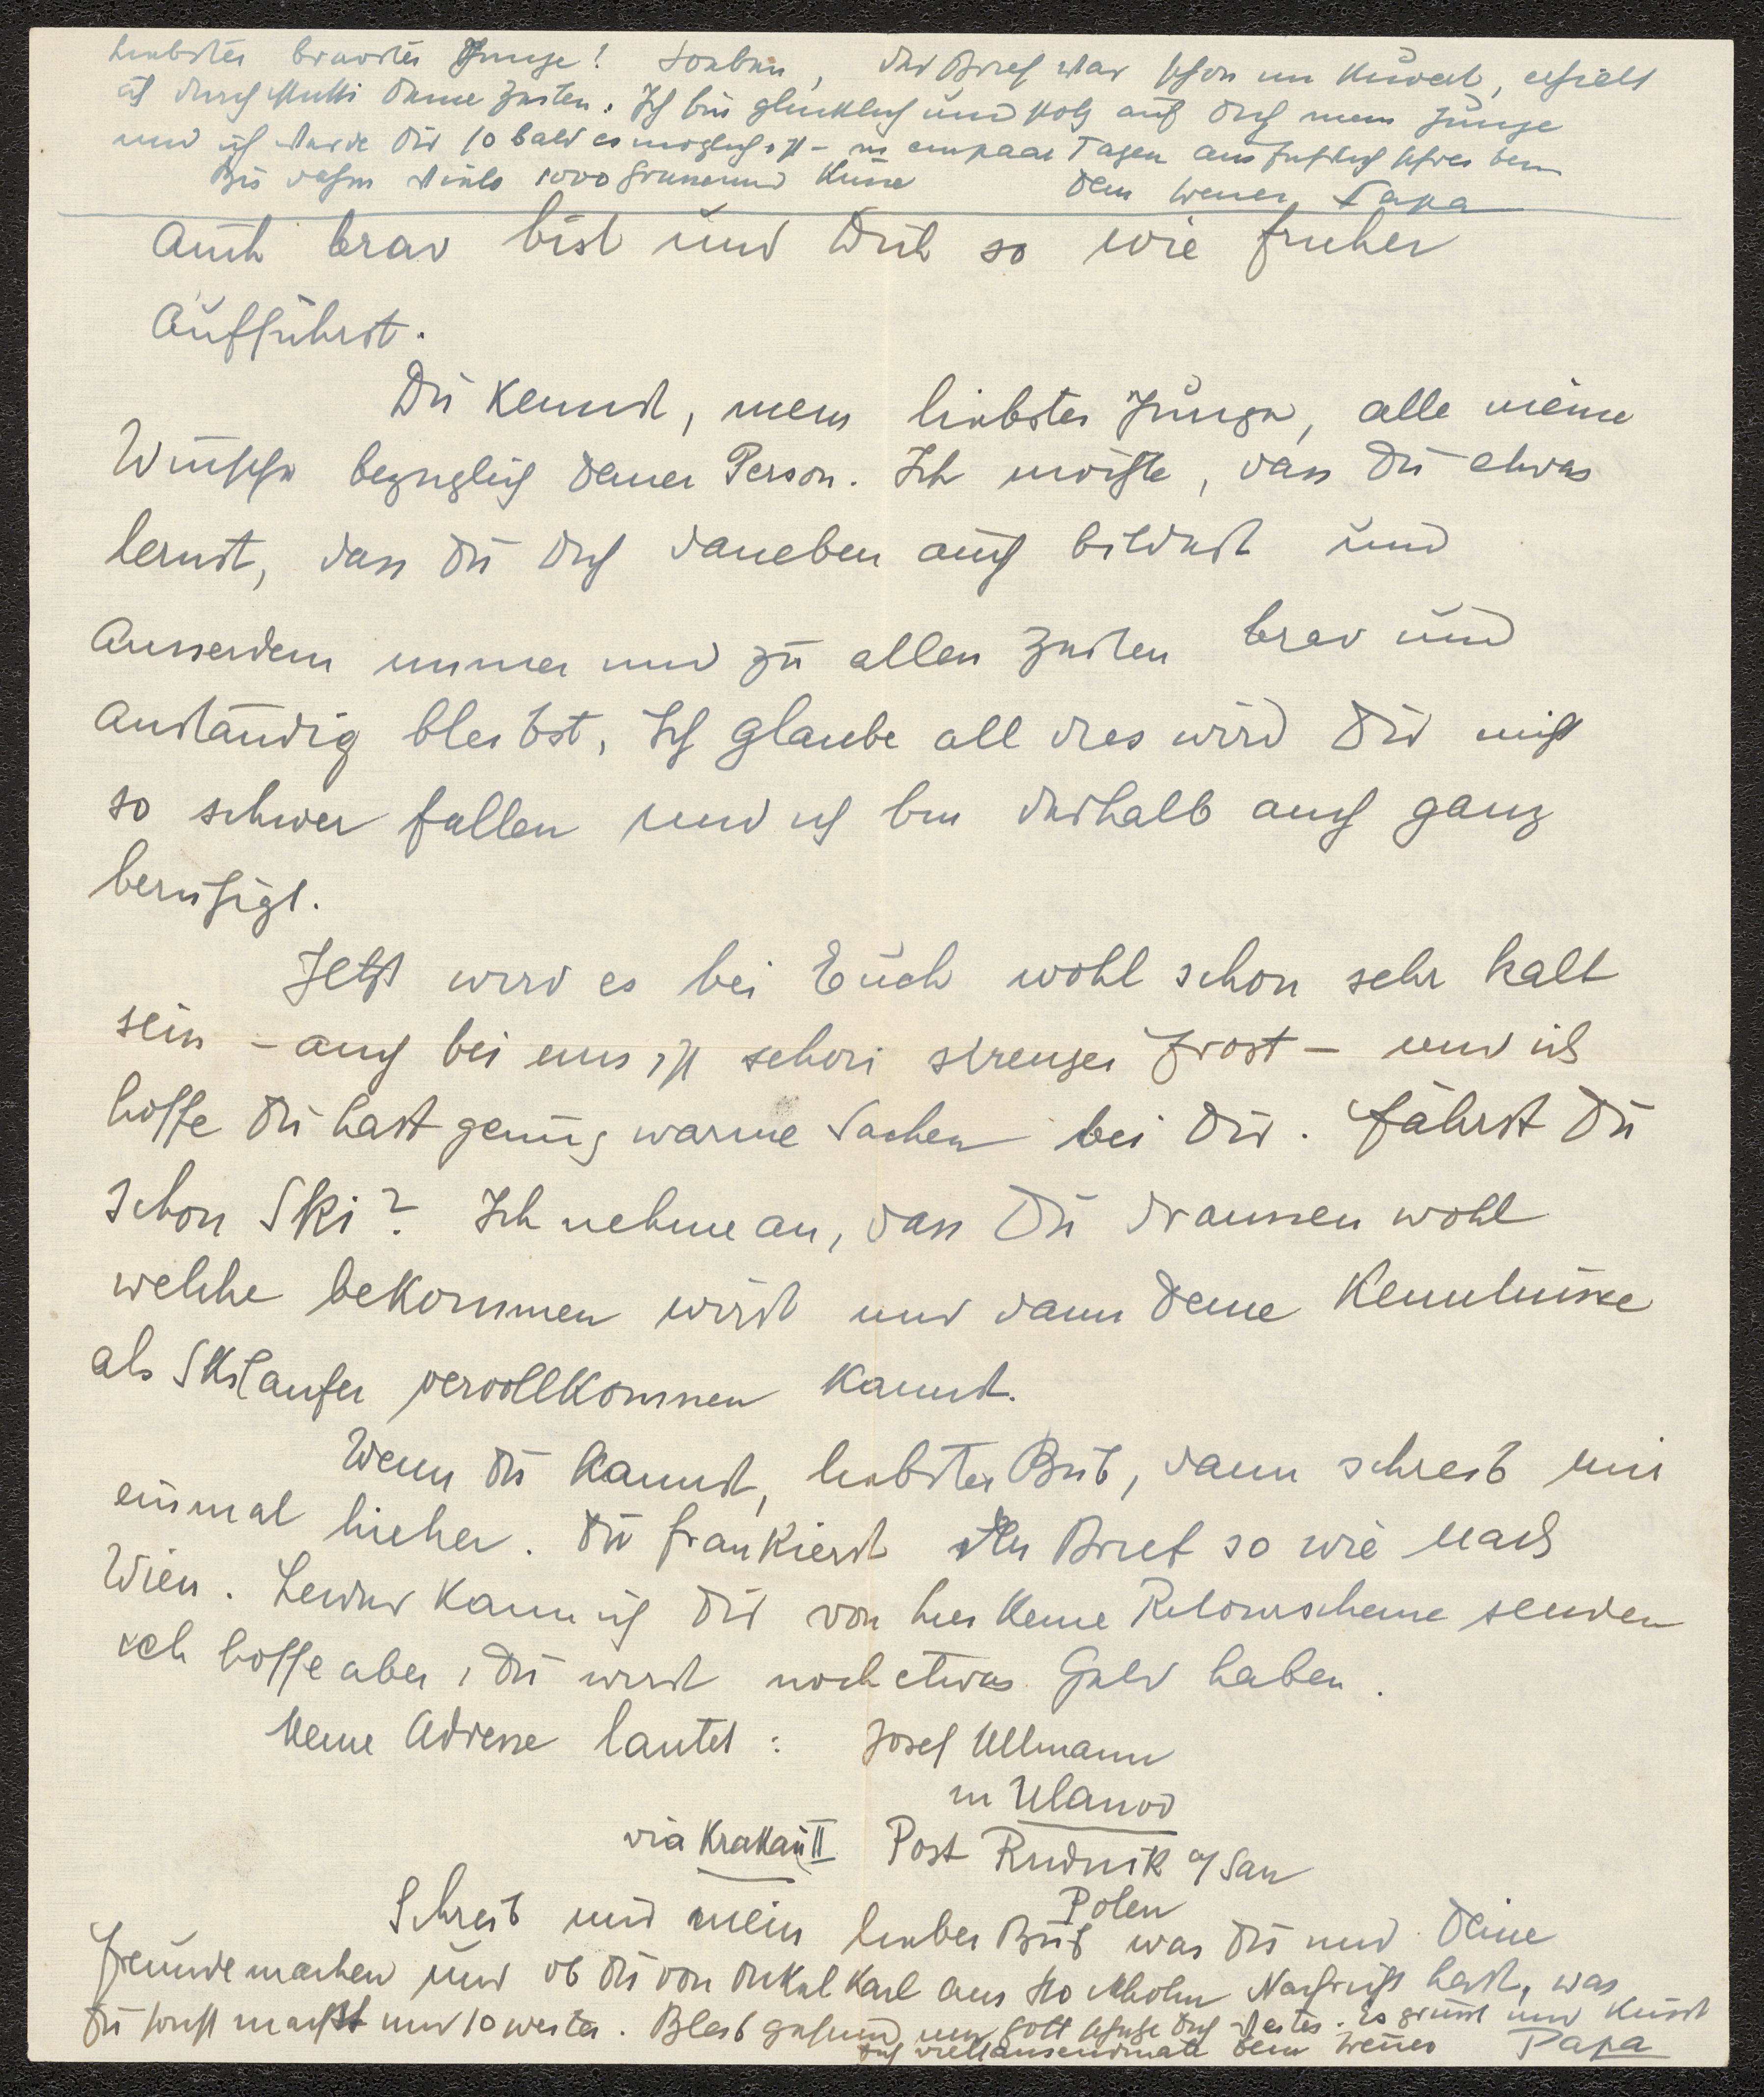 liebster bravster Junge! Soeben, der Brief war schon im Kuvert, erhielt
ich durch Mutti Deine Zeilen. Ich bin glücklich und stolz auf Dich mein Junge
und ich werde Dir so bald es möglich ist – in ein paar Tagen ausführlich schreiben
Bis dahin viele 1000 Grüsse und Küsse Dein treuer Papa
auch brav bist und Dich so wie früher
aufführst.
Du kennst, mein liebster Junge, alle meine
Wünsche bezüglich Deiner Person. Ich möchte, dass Du etwas
lernst, dass Du Dich daneben auch bildest und
ausserdem immer und zu allen Zeiten brav und
anständig bleibst. Ich glaube all dies wird Dir nicht
so schwer fallen und ich bin deshalb auch ganz
beruhigt.
Jetzt wird es bei Euch wohl schon sehr kalt
sein – auch bei uns ist schon strenger Frost – und ich
hoffe Du hast genug warme Sachen bei Dir. Fährst Du
schon Ski? Ich nehme an, dass Du draussen wohl
welche bekommen wirst und dann Deine Kenntnisse
als Skilaufer vervollkommen kannst.
Wenn Du kannst, liebster Bub, dann schreib mir
einmal hieher. Du frankierst den Brief so wie nach
Wien. Leider kann ich Dir von hier keine Retourscheine senden
ich hoffe aber, Du wirst noch etwas Geld haben.
Meine Adresse lautet: Josef Ullmann
in Ulanov
via Krakau II Post Rudnik a/San
Polen
Schreib mir mein lieber Bub was Du und Deine
Freunde machen und ob Du von Onkel Karl aus Stockholm Nachricht hast, was
Du sonst machst und so weiter. Bleib gesund und Gott schütze Dich weiter. Es grüsst und küsst
Dich vieltausendmal Dein treuer Papa